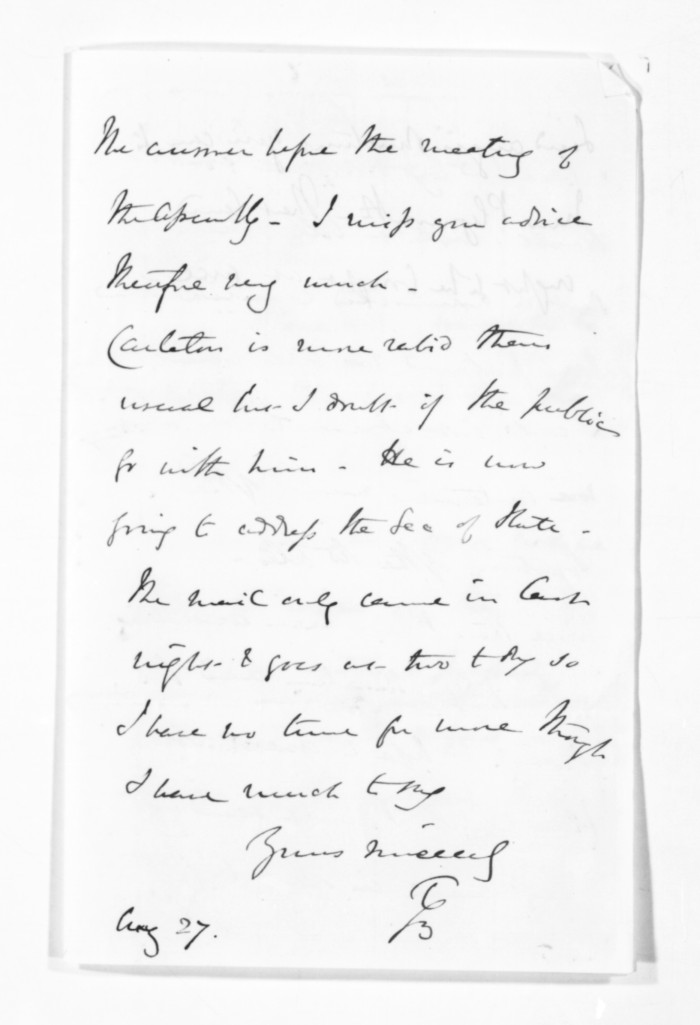 the answer before the meeting of
the Assembly - I miss your advice
therefore very much -
Carleton is more rabid than
usual but I doubt if the public
go with him - He is now
going to address the Sec of State -
The mail only came in last
night & goes at two to day so
I have no time for more though
I have much to say
Yours sincerely
TGB
Aug 27.